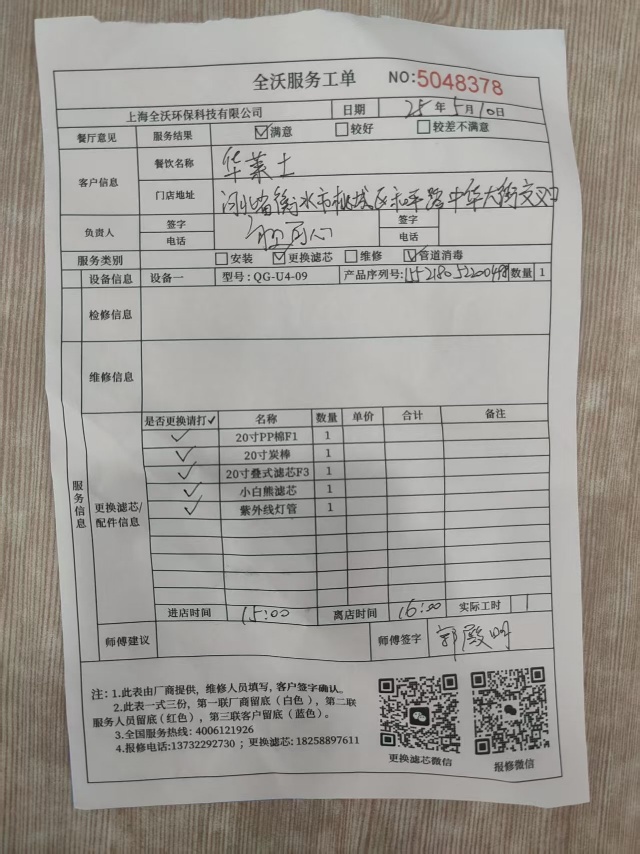 全沃服务工单 NO:5048378
上海全沃环保科技有限公司 日期 25年5月10日
餐厅意见 服务结果 ☑满意 □较好 □较差不满意
客户信息 餐饮名称 华莱士
门店地址 河北省衡水市桃城区和平路中华大街交叉口
负责人 签字 签字
电话 电话
服务类别 □安装 ☑更换滤芯 □维修 ☑管道消毒
设备信息 设备一 型号:QG-U4-09 产品序列号: 数量 1
检修信息
维修信息
服务信息
更换滤芯/配件信息
是否更换请打✓ 名称 数量 单价 合计 备注
✓ 20寸PP棉F1 1
✓ 20寸炭棒 1
✓ 20寸叠式滤芯F3 1
✓ 小白熊滤芯 1
✓ 紫外线灯管 1
进店时间 15:00 离店时间 16:00 实际工时 1
师傅建议 师傅签字 郭殿明
注:1.此表由厂商提供，维修人员填写，客户签字确认。
2.此表一式三份，第一联厂商留底（白色），第二联
服务人员留底(红色)，第三联客户留底（蓝色）。
3.全国服务热线: 4006121926
4.报修电话:13732292730 ；更换滤芯: 18258897611
更换滤芯微信 报修微信